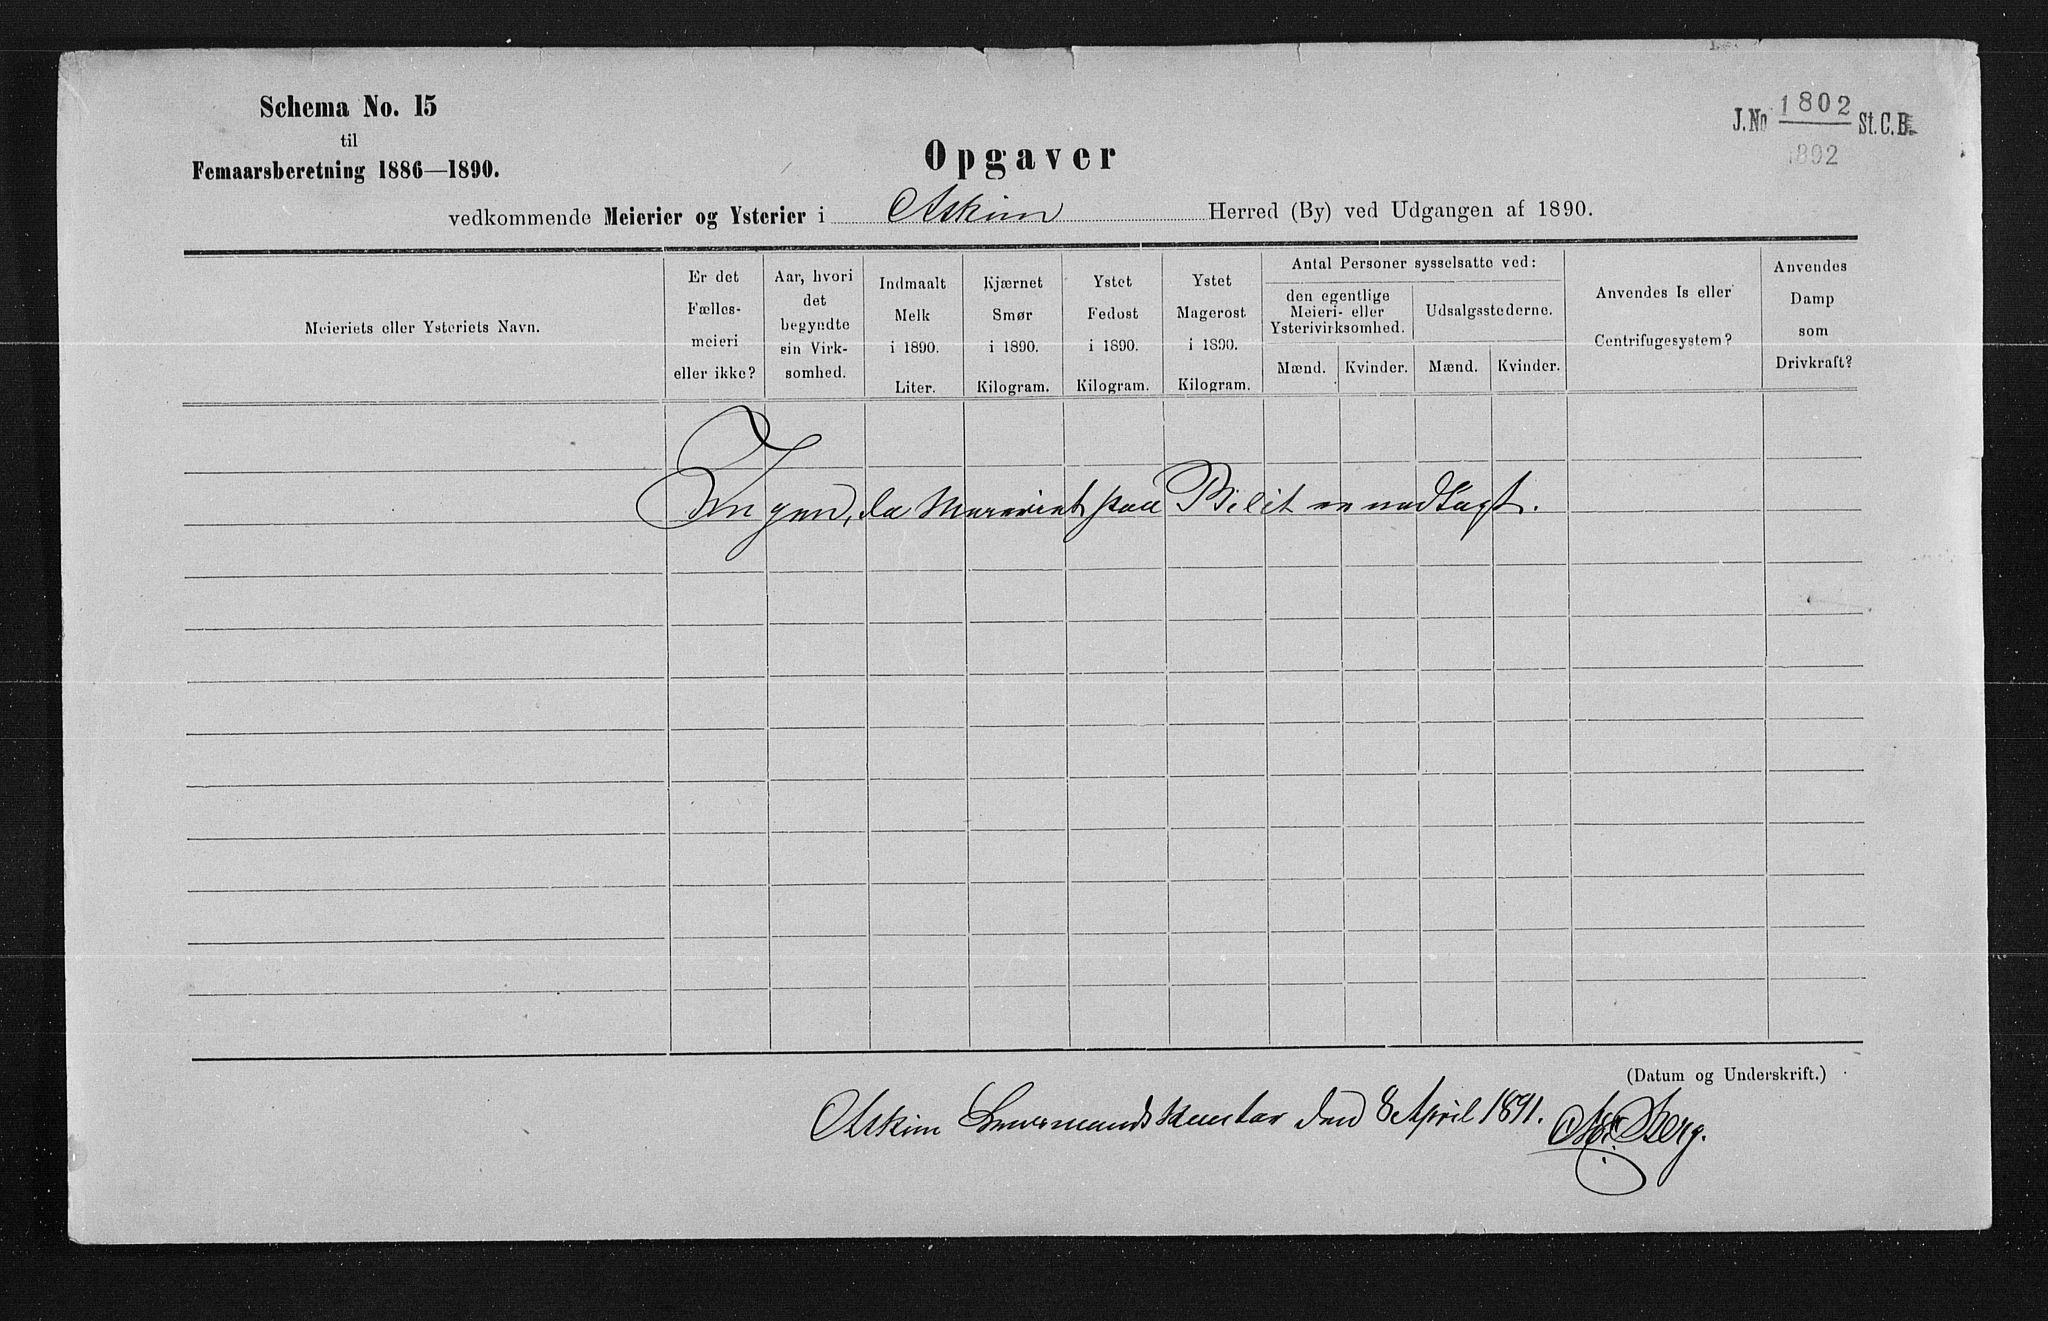 Schema No. 15
til
Femaarsberetning 1886—1890.
J.No 1802 St.C.B.
1892
Opgaver
vedkommende Meierier og Ysterier i Askim Herred (By) ved Udgangen af 1890.
Meieriets eller Ysteriets Navn.
Er det Fælles-meieri eller ikke?
Aar, hvori det begyndte sin Virk-somhed.
Indmaalt Melk i 1890. Liter.
Kjærnet Smør i 1890. Kilogram.
Ystet Fedost i 1890. Kilogram.
Ystet Magerost i 1890. Kilogram.
Antal Personer sysselsatte ved:
den egentlige Meieri- eller Ysterivirksomhed.
Mænd. Kvinder.
Udsalgsstederne.
Mænd. Kvinder.
Anvendes Is eller Centrifugesystem?
Anvendes Damp som Drivkraft?
Ingen, da Meieriet paa er nedlagt.
(Datum og Underskrift.)
Askim Lensmandskontor den 8 April 1891. Berg.